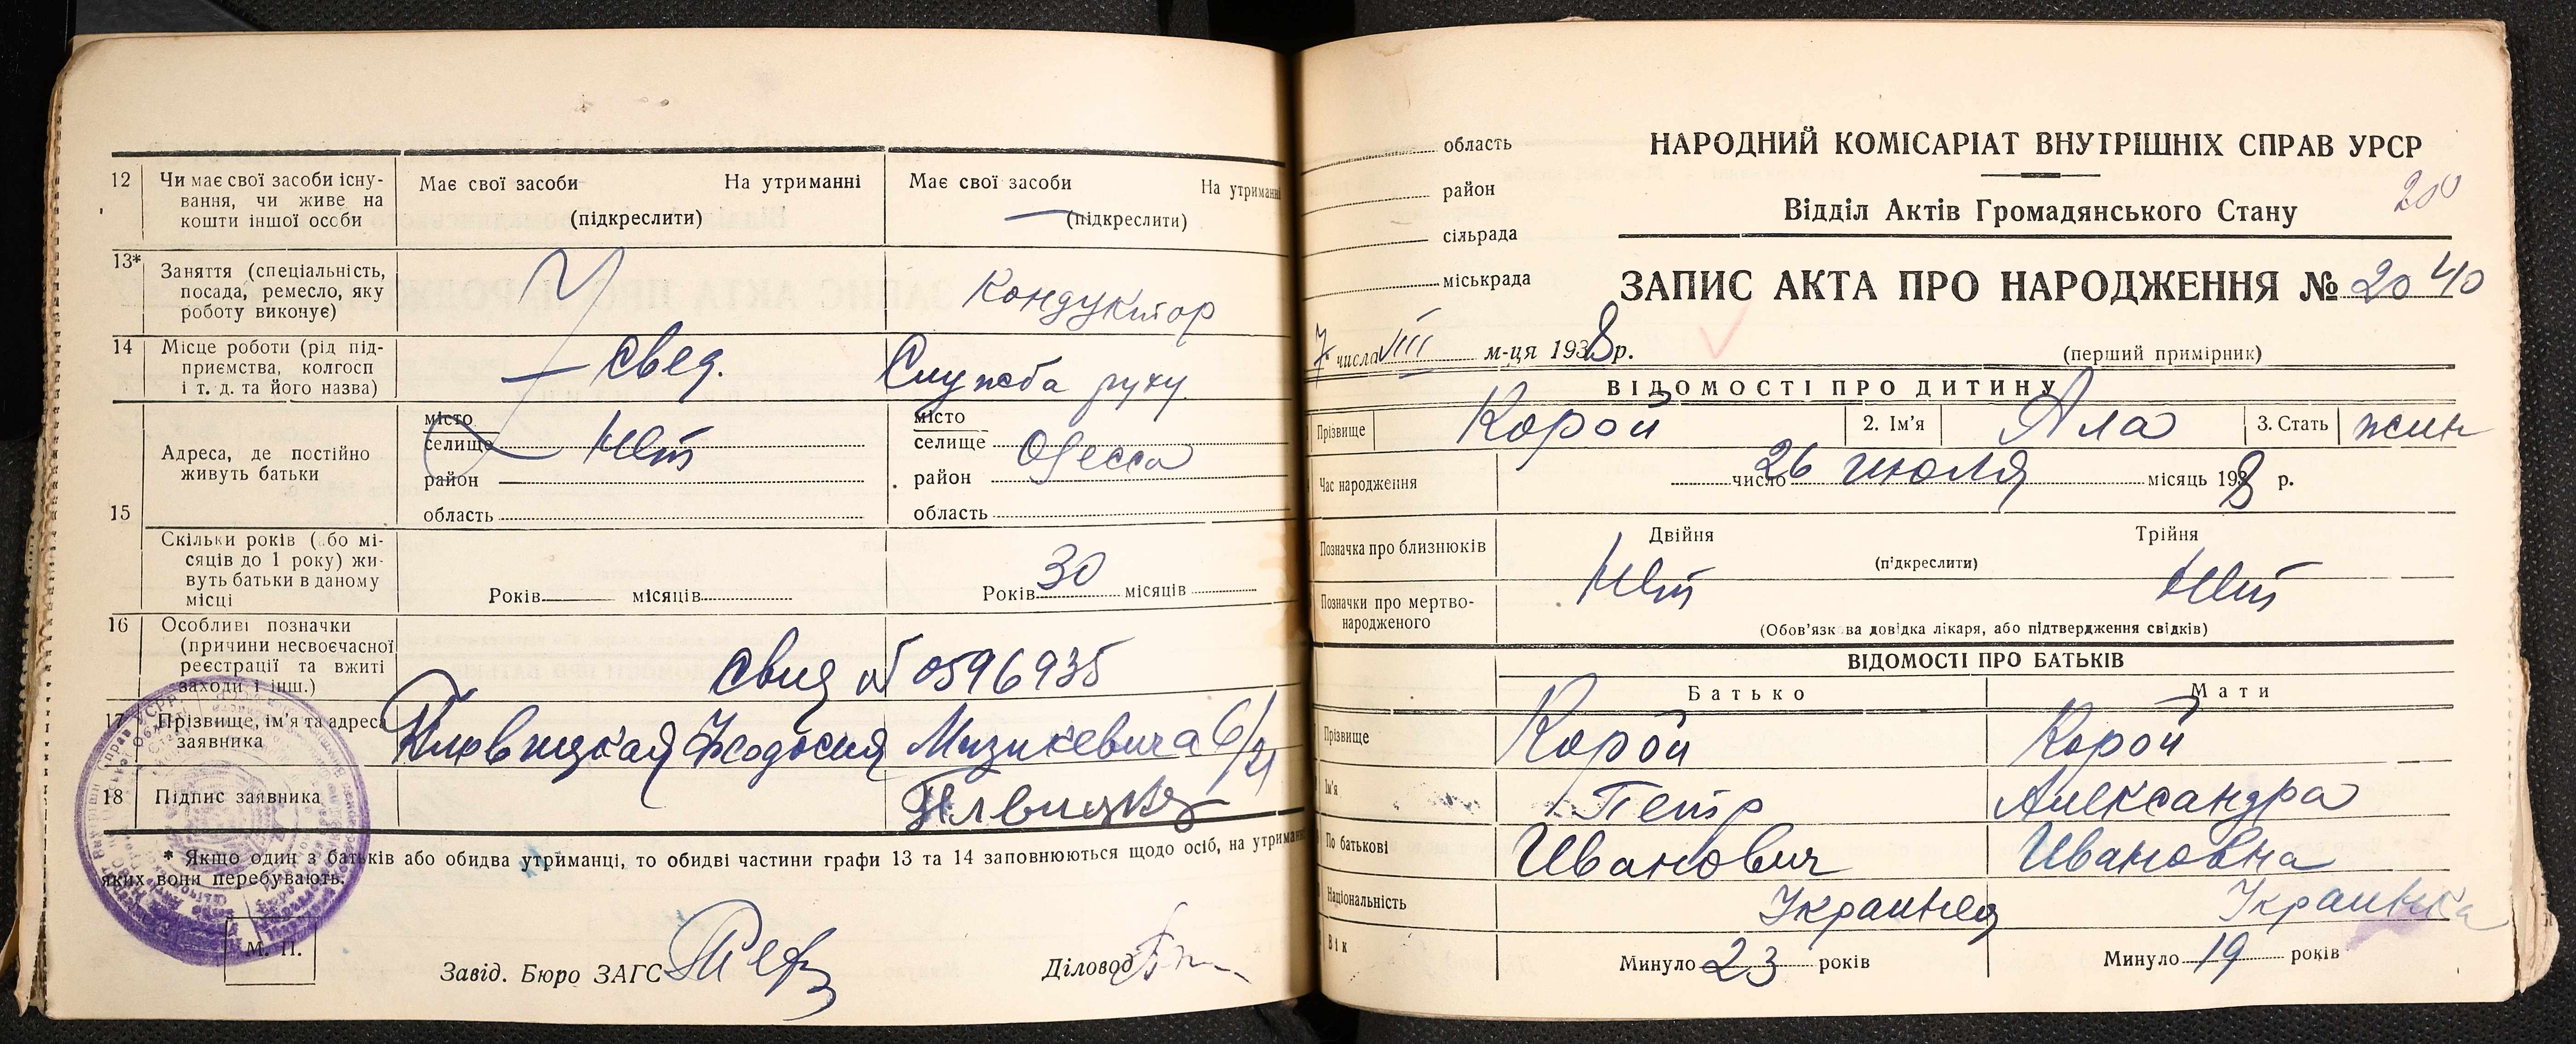 12 Чи має свої засоби існування, чи живе на кошти іншої особи
Має свої засоби На утриманні
(підкреслити)
Має свої засоби На утриманні
(підкреслити)
13* Заняття (спеціальність, посада, ремесло, яку роботу виконує)
Кондуктор
14 Місце роботи (рід підприємства, колгосп і т. д. та його назва)
— свед.
Служба руху
15 Адреса, де постійно живуть батьки
місто
селище нет
район
область
місто
селище Одесса
район
область
Скільки років (або місяців до 1 року) живуть батьки в даному місці
Років місяців
Років 30 місяців
16 Особливі позначки (причини несвоєчасної реєстрації та вжиті заходи і інш.)
свид № 0596935
17 Прізвище, ім'я та адреса заявника
Феодосия Мизикевича 6/21
18 Підпис заявника
* Якщо один з батьків або обидва утриманці, то обидві частини графи 13 та 14 заповнюються щодо осіб, на утриманні
яких вони перебувають.
М. П.
Завід. Бюро ЗАГС
Діловод
область
район
сільрада
міськрада
НАРОДНИЙ КОМІСАРІАТ ВНУТРІШНІХ СПРАВ УРСР
200
Відділ Актів Громадянського Стану
ЗАПИС АКТА ПРО НАРОДЖЕННЯ № 2040
7 числа VIII м-ця 1938 р.
(перший примірник)
ВІДОМОСТІ ПРО ДИТИНУ
Прізвище Корой 2. Ім'я Ала 3. Стать жин
Час народження число 26 июля місяць 1938 р.
Позначка про близнюків Двійня Трійня
(підкреслити)
нет нет
Позначки про мертвонародженого
(Обов'язкова довідка лікаря, або підтвердження свідків)
ВІДОМОСТІ ПРО БАТЬКІВ
Батько Мати
Прізвище Корой Корой
Ім'я Петр Александра
По батькові Иванович Ивановна
Національність Украинец Украинка
Вік Минуло 23 років Минуло 19 років